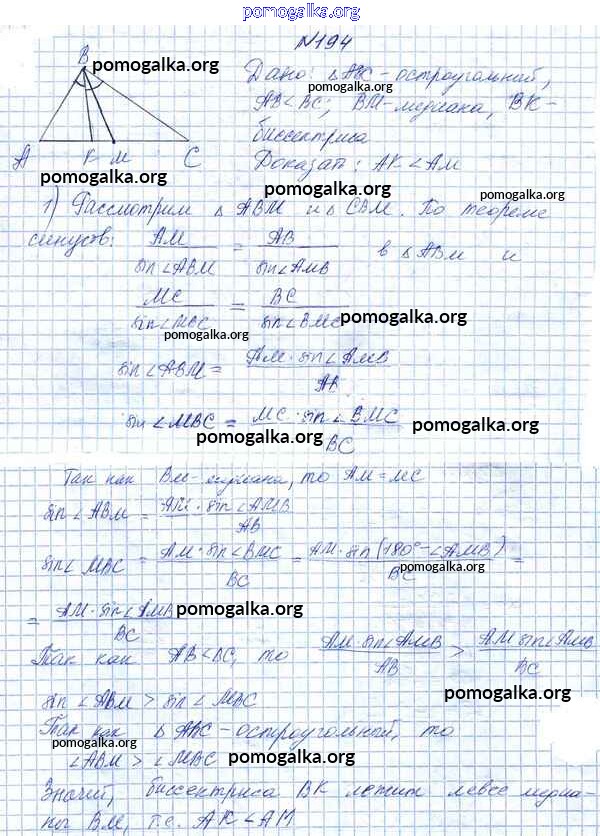 pomogalka.org
N194
B
pomogalka.org
Дано: △ABC - остроугольный,
pomogalka.org
AB<BC; BM-медиана, BK-
биссектриса
A K M C
pomogalka.org
Доказат: AK<AM
pomogalka.org
pomogalka.org
1) Рассмотрим △ ABM и △ CBM. По теореме
синусов: AM / sin∠ABM = AB / sin∠AMB в △ABM и
MC / sin∠MBC = BC / sin∠BMC
pomogalka.org
pomogalka.org
sin∠ABM = AM·sin∠AMB / AB
sin∠MBC = MC·sin∠BMC / BC
pomogalka.org
pomogalka.org
Так как BM-медиана, то AM=MC
sin∠ABM = AM·sin∠AMB / AB
sin∠MBC = AM·sin∠BMC / BC = AM·sin(180°-∠AMB) / BC =
pomogalka.org
= AM·sin∠AMB / BC
pomogalka.org
Так как AB<BC, то AM·sin∠AMB / AB > AM sin∠AMB / BC
pomogalka.org
pomogalka.org
sin∠ABM > sin∠MBC
pomogalka.org
Так как △ ABC-остроугольный, то
pomogalka.org
pomogalka.org
∠ABM > ∠MBC
Значит, биссектриса BK лежит левее медиа-
pomogalka.org
pomogalka.org
ны BM, т.е. AK<AM